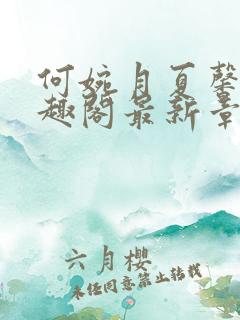 何婉月夏馨
趣阁最新章
六月樱
未经同意禁止转载